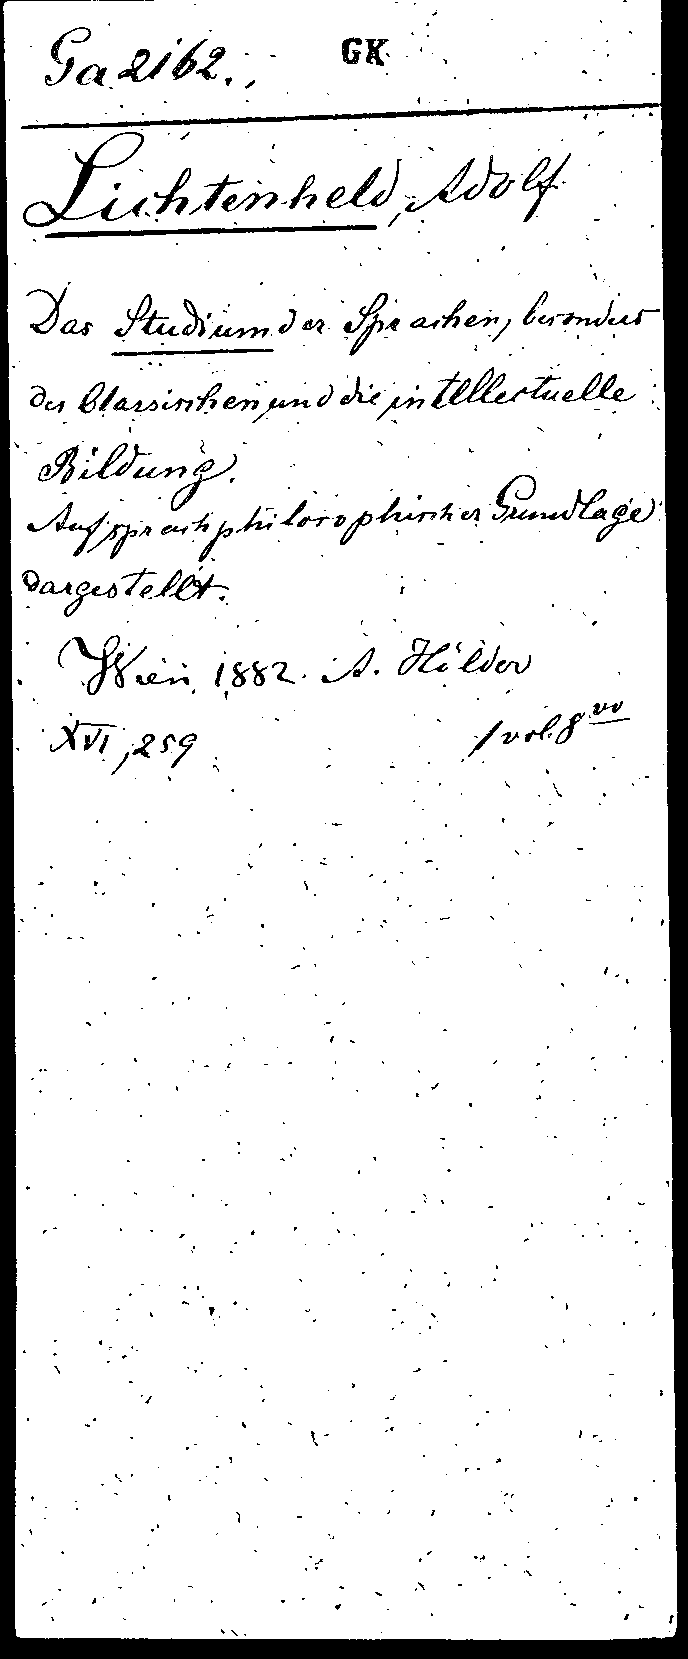 Ga 2162. GK
Lichtenheld, Adolf
Das Studium der Sprachen, besonders
der Classischen und die intellectuelle
Bildung.
Auf sprachphilosophischer Grundlage
dargestellt.
Wien 1882. A. Hölder
XVI, 259 1 vol. 8vo